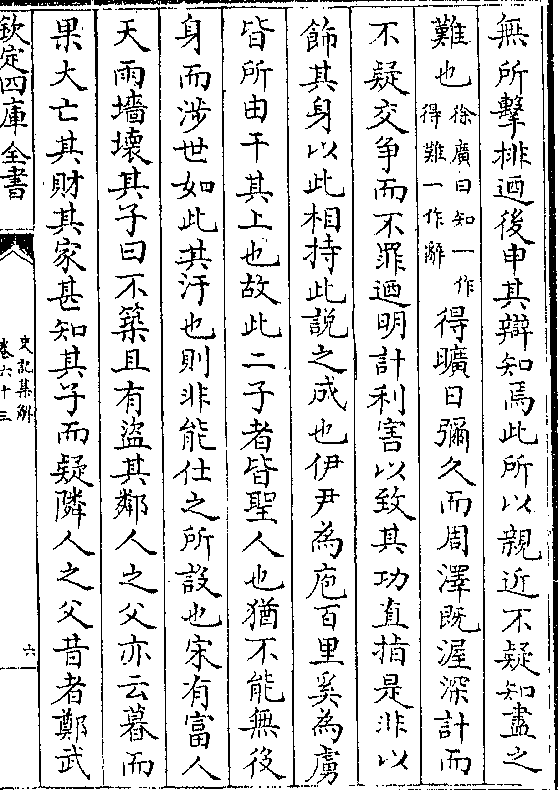 無所擊排迺後申其辯知焉此所以親近不疑知盡之
難也徐廣曰知一作得難一作辭得曠日彌久而周澤既渥深計而
不疑交争而不罪迺明計利害以致其功直指是非以
飾其身以此相持此說之成也伊尹為庖百里奚為虜
皆所由干其上也故此二子者皆聖人也猶不能無役
身而涉世如此其汙也則非能仕之所設也宋有富人
天雨墻壞其子曰不築且有盜其鄰人之父亦云暮而
果大亡其財其家甚知其子而疑隣人之父昔者鄭武
欽定四庫全書
史記集解
卷六十三
六